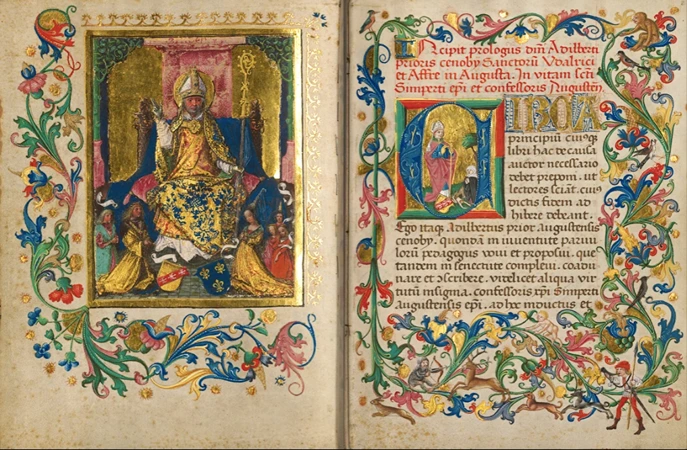 INcipit prologus dm̄ Adilberti
prioris cenoby Sanctorū Vdalrici
et Affre in Augusta. In vitam sc̄ti
Simperti ep̄i et confessoris Augusteñ
principiū cuiusq;
libri hac de causa
auctor necessario
debet preponi. ut
lectores sciāt. cuiꝰ
dictis fidem ad
hibere debeant.
Ego itaq; Adilbertus prior augustensis
cenoby. quondā in iuuentute paruu
lorū pedagogus voui et proposui. que
tandem in senectute compleui. coadu
nare et ↄscribere. videlicet aliqua vir
tutū insignia. confessoris xp̄i Simperti
augustensis ep̄i. ad hec inductus et